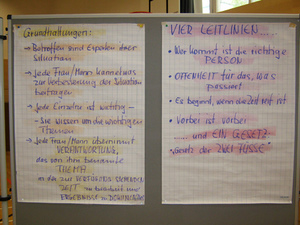 Grundhaltungen:
→ Betroffene sind Experten ihrer
Situation
→ jede Frau/Mann kann etwas
zur Verbesserung der Situation
beitragen
→ Jede Einzelne ist wichtig –
Sie wissen um die wichtigen
Themen
→ jede Frau/Mann übernimmt
VERANTWORTUNG,
das von ihm benannte
THEMA
in der zur VERFÜGUNG STEHENDEN
ZEIT zu bearbeiten und
ERGEBNISSE zu DOKUMENTIEREN
VIER LEITLINIEN....
• Wer kommt ist die richtige
PERSON
• OFFENHEIT für das, was
passiert
• Es beginnt, wenn die Zeit reif ist
• Vorbei ist vorbei
..... und EIN GESETZ
"Gesetz der ZWEI FÜSSE"